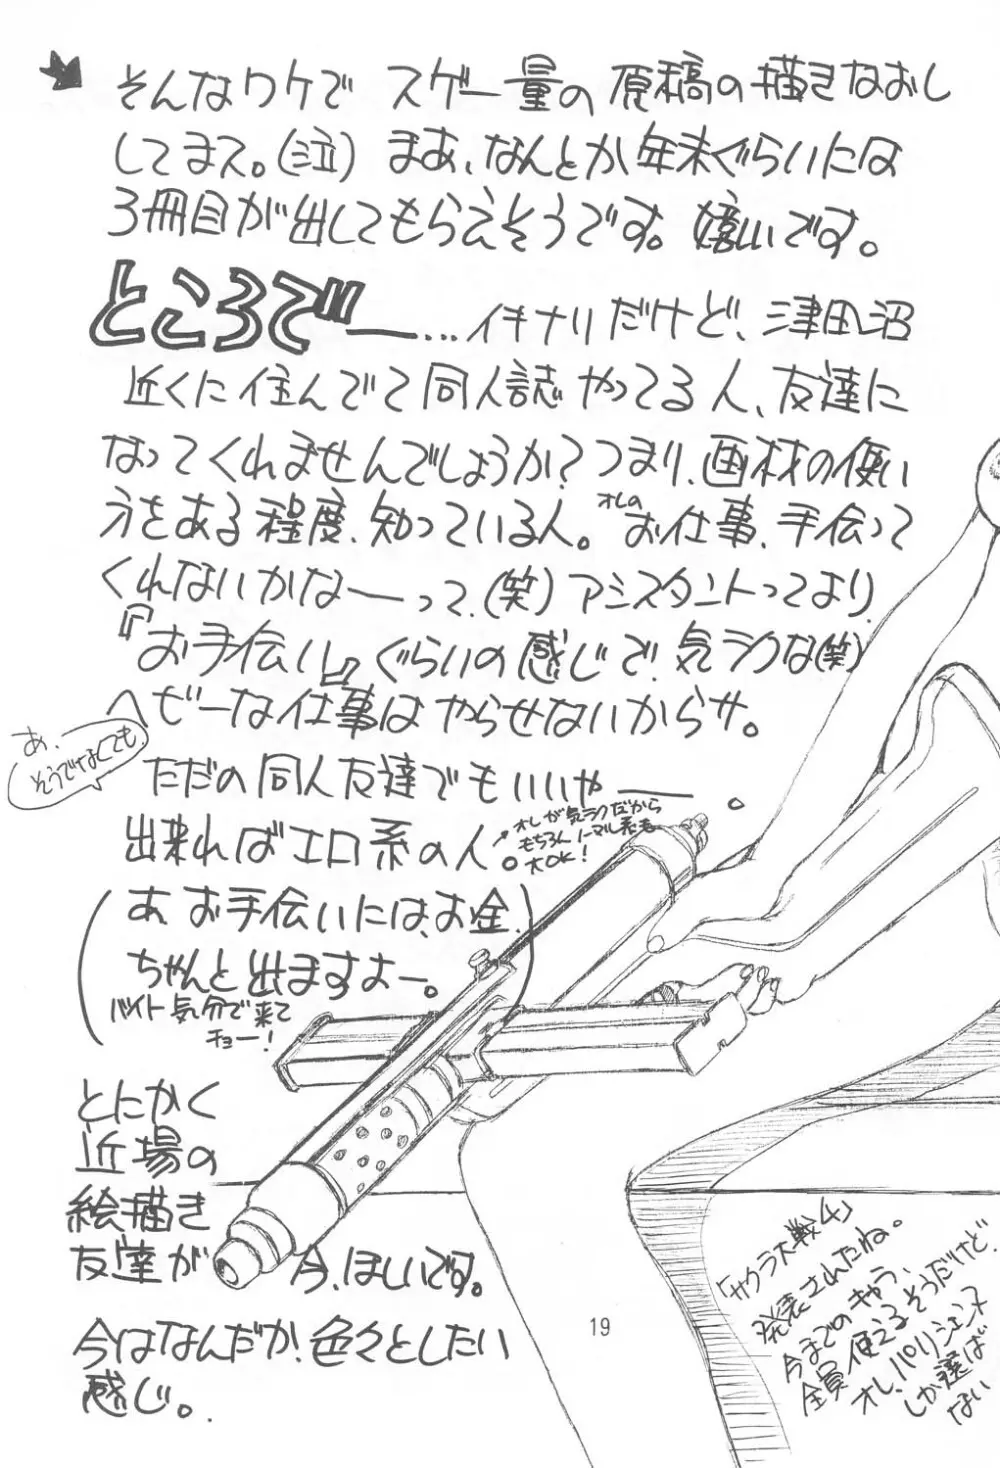 そんなワケで スゲー量の原稿の描きなおし
してまス。(泣) まあ、なんとか年末ぐらいには
3冊目が出してもらえそうです。嬉しいです。
ところでー…イキナリだけど、津田沼
近くに住んでて同人誌やってる人、友達に
なってくれませんでしょうか?つまり、画材の使い
方をある程度、知っている人。オレのお仕事、手伝って
くれないかなーって、(笑)アシスタントってより、
『お手伝い』ぐらいの感じで、気ラクな(笑)
ヘビーな仕事はやらせないからサ。
あ、
そうでなくても、
ただの同人友達でもいいやー。
出来ればエロ系の人。
オレが気ラクだから
もちろんノーマル系も
大OK!
(あ、お手伝いには、お金、
ちゃんと出ますよー。)
バイト気分で来て
チョー!
とにかく
近場の
絵描き
友達が 今、ほしいです。
今はなんだか、色々としたい
感じ。
「サクラ大戦4」
発表されたね。
今までのキャラ、
全員使えるそうだけど、
オレ、パリジェンヌ
しか選ば
ない
19